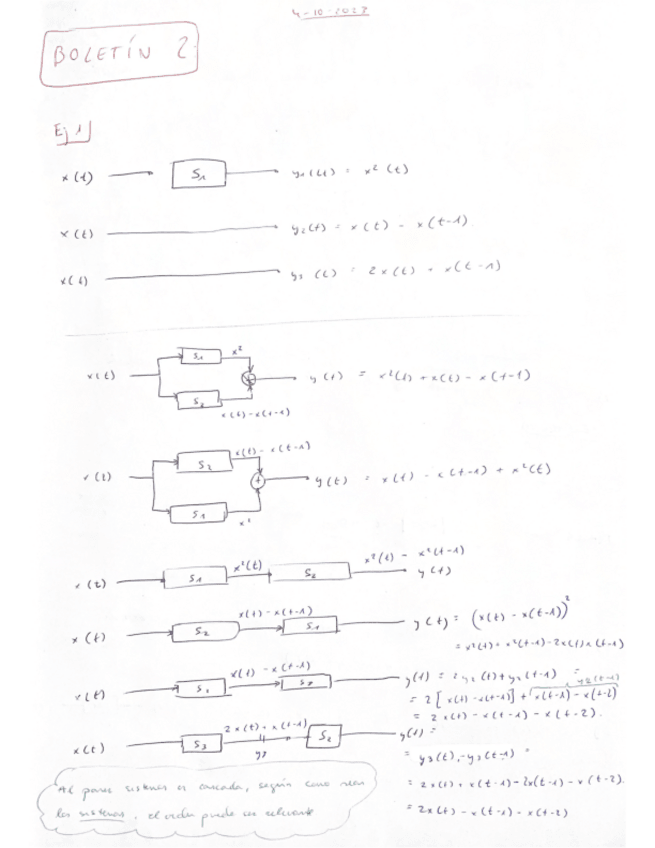 4-10-2022
BOLETÍN 2
Ej 1
x(t) S1 y1(t) = x²(t)
x(t) y2(t) = x(t) - x(t-1)
x(t) y3(t) = 2x(t) + x(t-1)
x(t) S1 x² S2 x(t)-x(t-1) + y(t) = x²(t) + x(t) - x(t-1)
x(t) S2 x(t)-x(t-1) S1 x² + y(t) = x(t) - x(t-1) + x²(t)
x(t) S1 x²(t) S2 x²(t) - x²(t-1) y(t)
x(t) S2 x(t)-x(t-1) S1 y(t) = (x(t) - x(t-1))²
= x²(t) + x²(t-1) - 2x(t)x(t-1)
x(t) x(t) - x(t-1) y(t) = 2y2(t) + y2(t-1) =
y2(t-1)
= 2[x(t) - x(t-1)] + x(t-1) - x(t-2)
= 2x(t) - x(t-1) - x(t-2).
x(t) S3 2x(t) + x(t-1) y3 S2 y(t) =
= y3(t) - y3(t-1) =
= 2x(t) + x(t-1) - 2x(t-1) - x(t-2).
= 2x(t) - x(t-1) - x(t-2)
Al poner sistemas en cascada, según como sean
los sistemas, el orden puede ser relevante